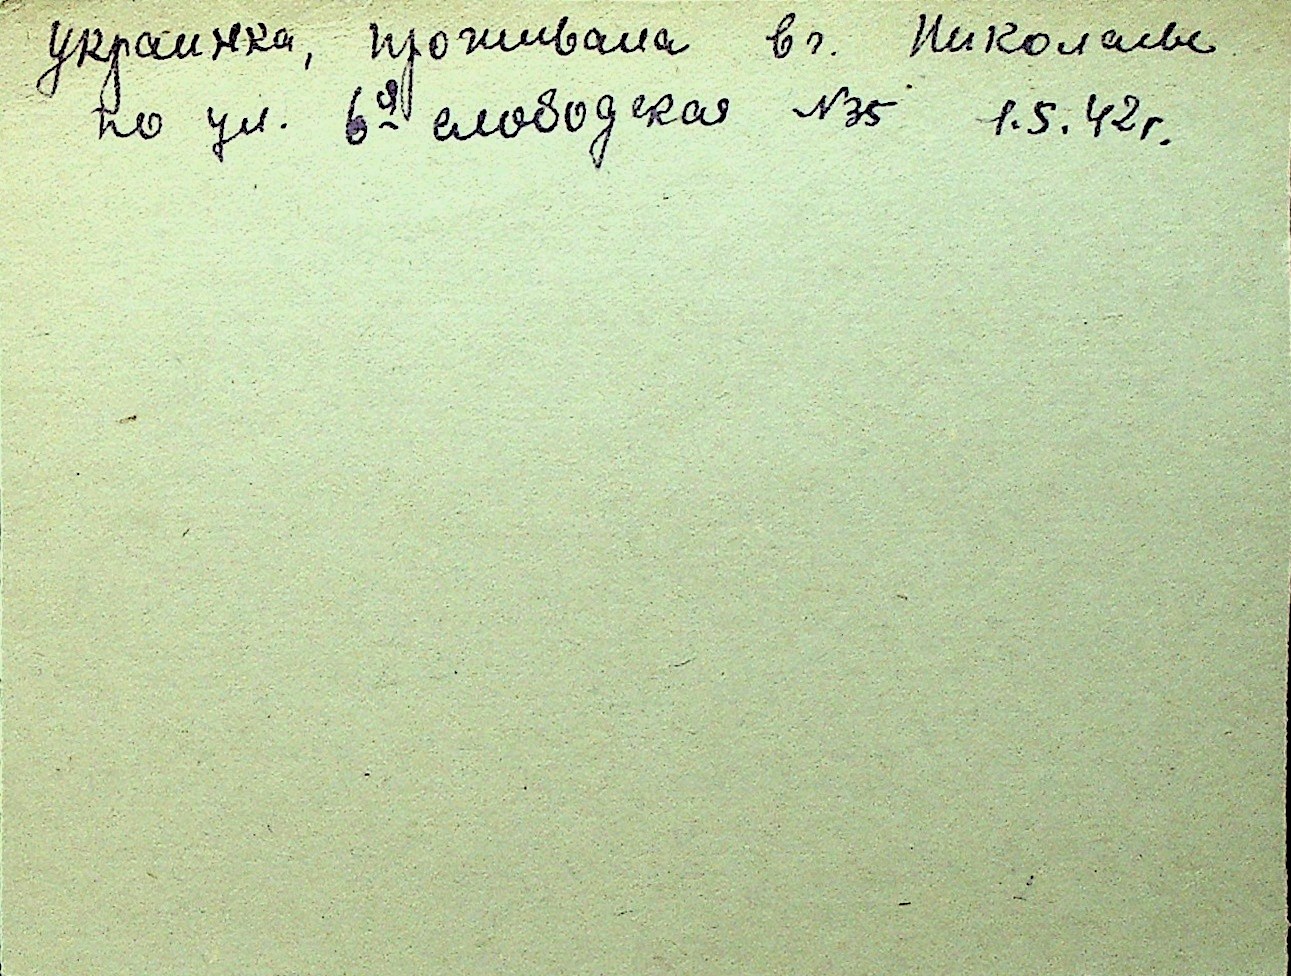 украинка, проживала в г. Николаеве
по ул. 6я слободская №35 1.5.42г.